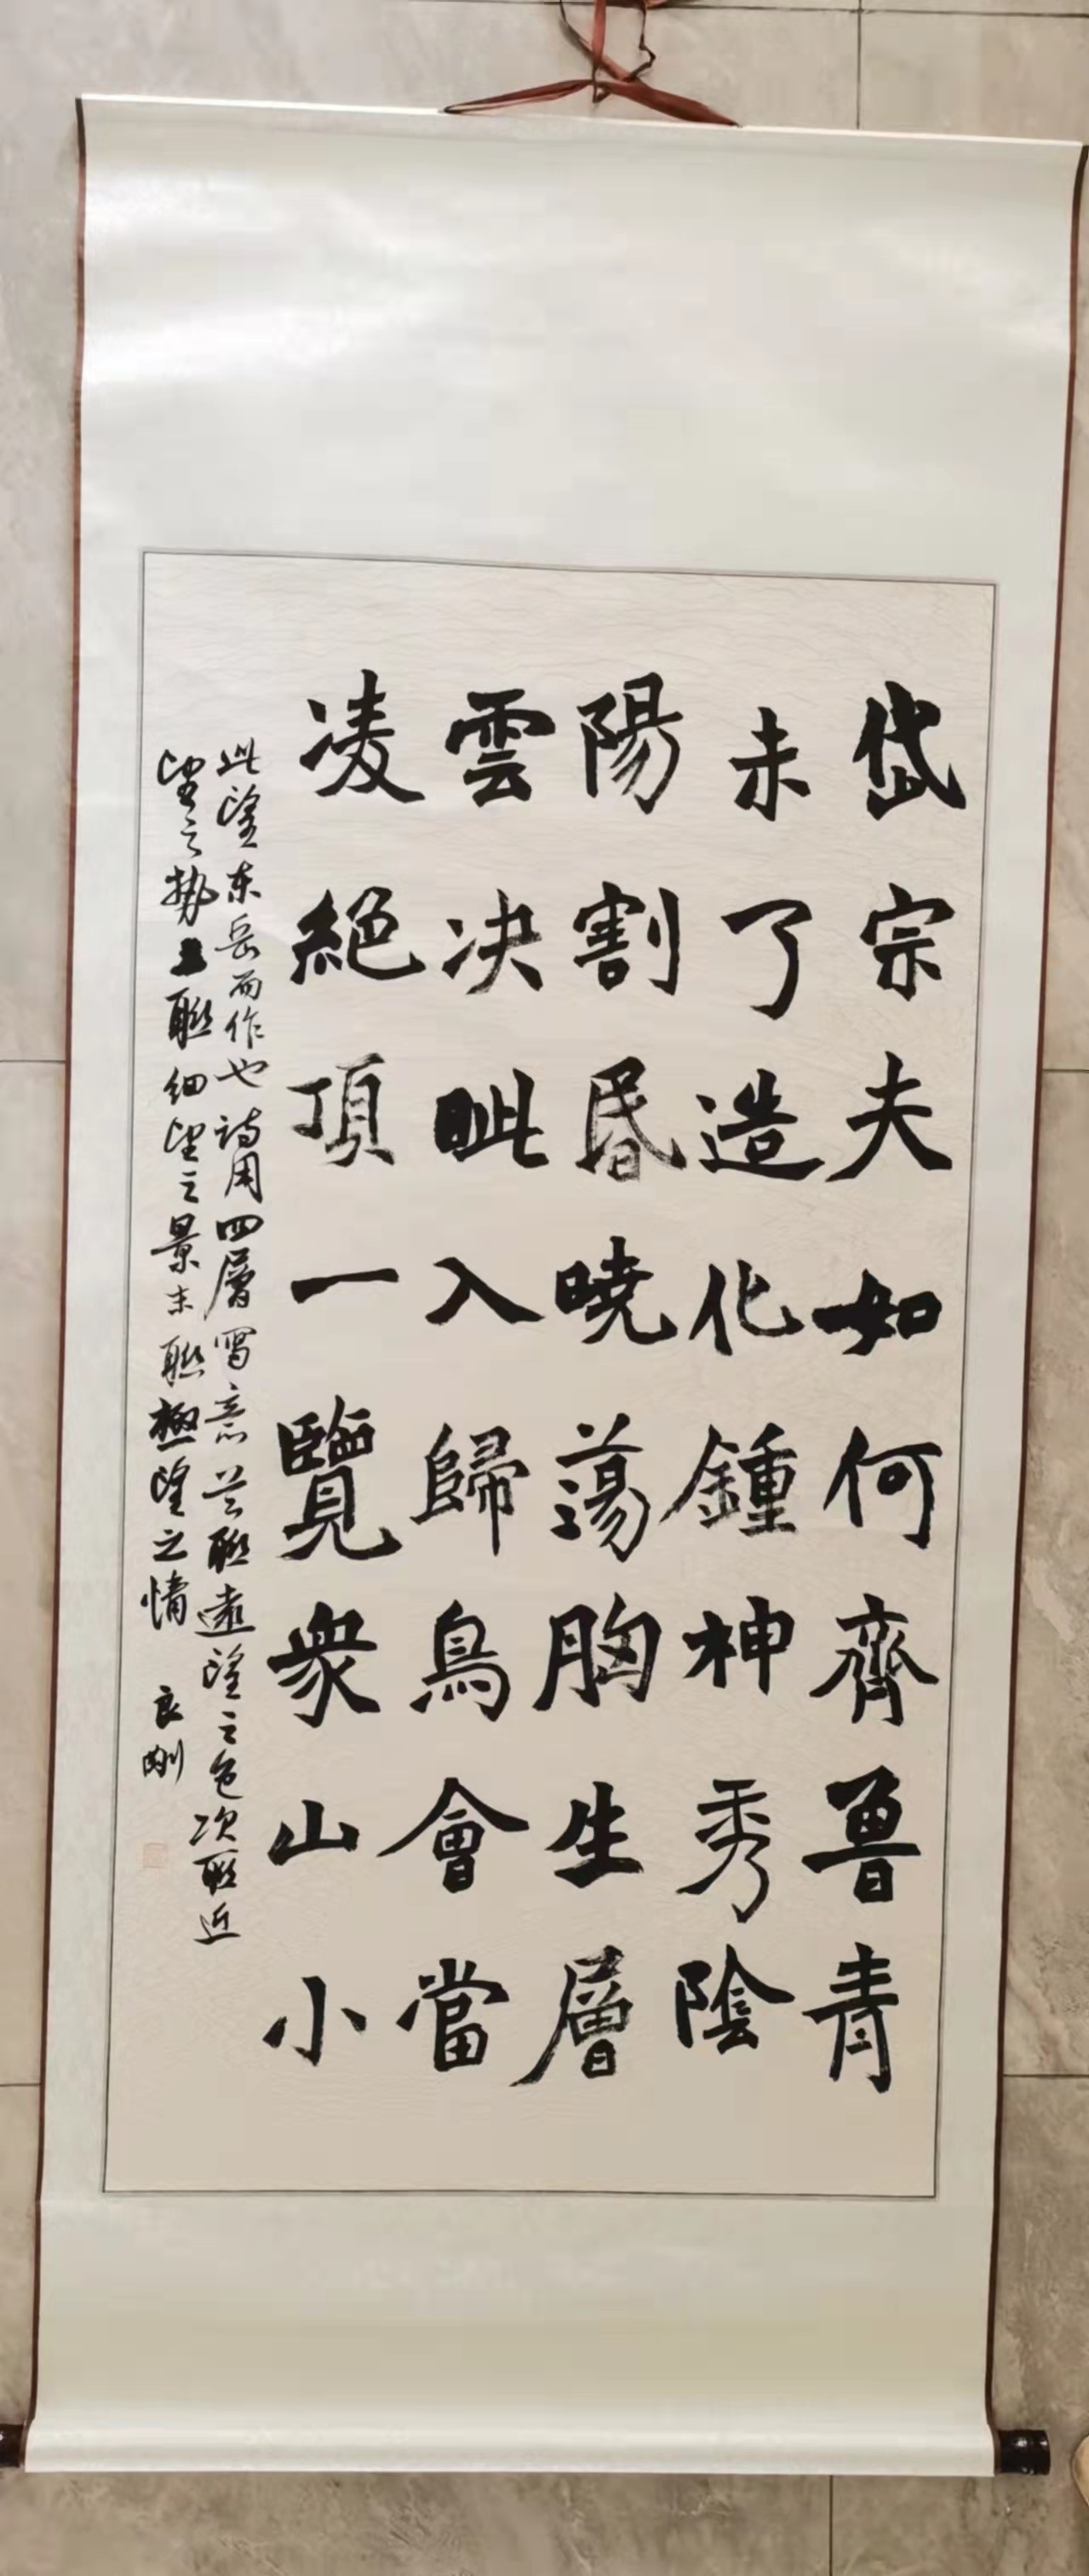 岱宗夫如何齊魯青
未了造化鍾神秀陰
陽割昏曉蕩胸生層
雲决眥入歸鳥會當
凌絕頂一覽衆山小
此望東岳而作也詩用四層寫意首聯遠望之色次聯近
望之勢三聯細望之景末聯極望之情 良剛